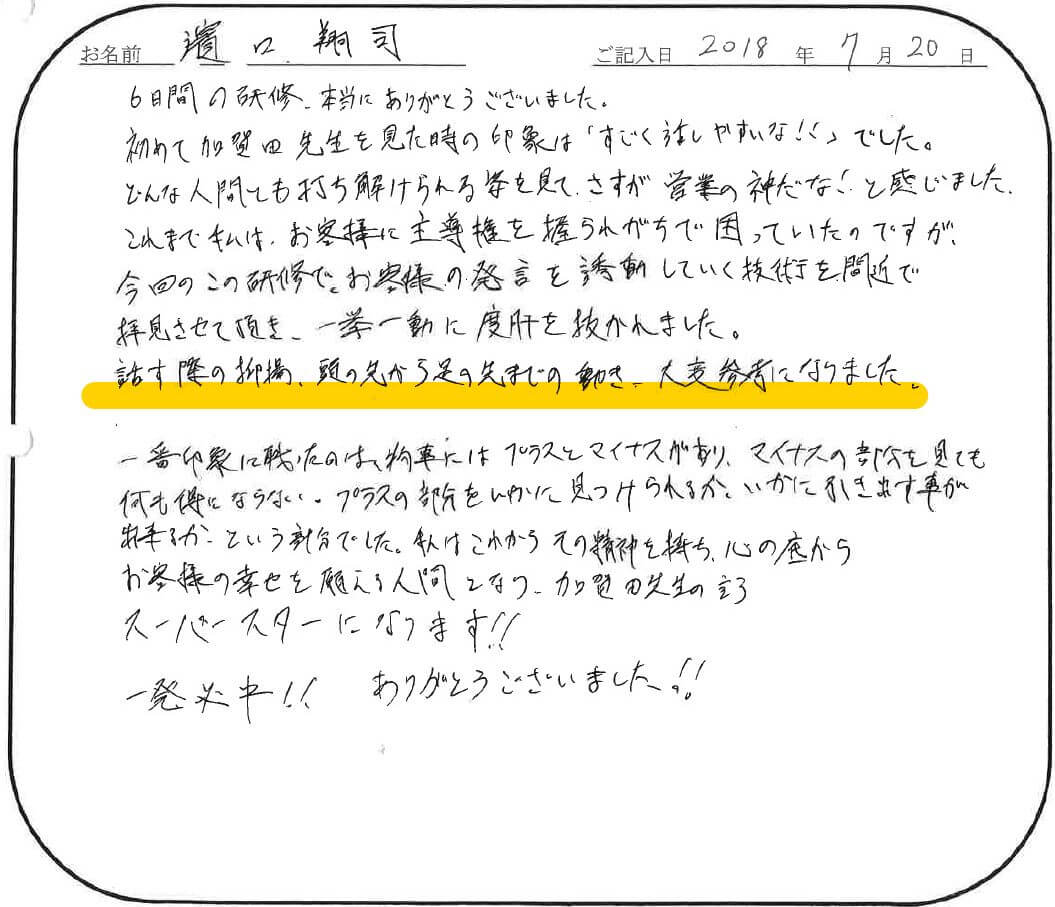 お名前 濵口 翔司 ご記入日 2018年7月20日
6日間の研修、本当にありがとうございました。
初めて加賀田先生を見た時の印象は「すごく話しやすいな!!」でした。
どんな人間でも打ち解けられる姿を見て、さすが営業の神だな!と感じました。
これまで私は、お客様に主導権を握られがちで困っていたのですが、
今回のこの研修で、お客様の発言を誘動していく技術を間近で
拝見させて頂き、一挙一動に度肝を抜かれました。
話す際の抑揚、頭の先から足の先までの動き、大変参考になりました。
一番印象に残ったのは、物事にはプラスとマイナスがあり、マイナスの部分を見ても
何も得にならない。プラスの部分をいかに見つけられるか、いかに引き出す事が
出来るか、という部分でした。私はこれからその精神を持ち、心の底から
お客様の幸せを願える人間となり、加賀田先生の言う
スーパースターになります!!
一発必中!! ありがとうございました!!